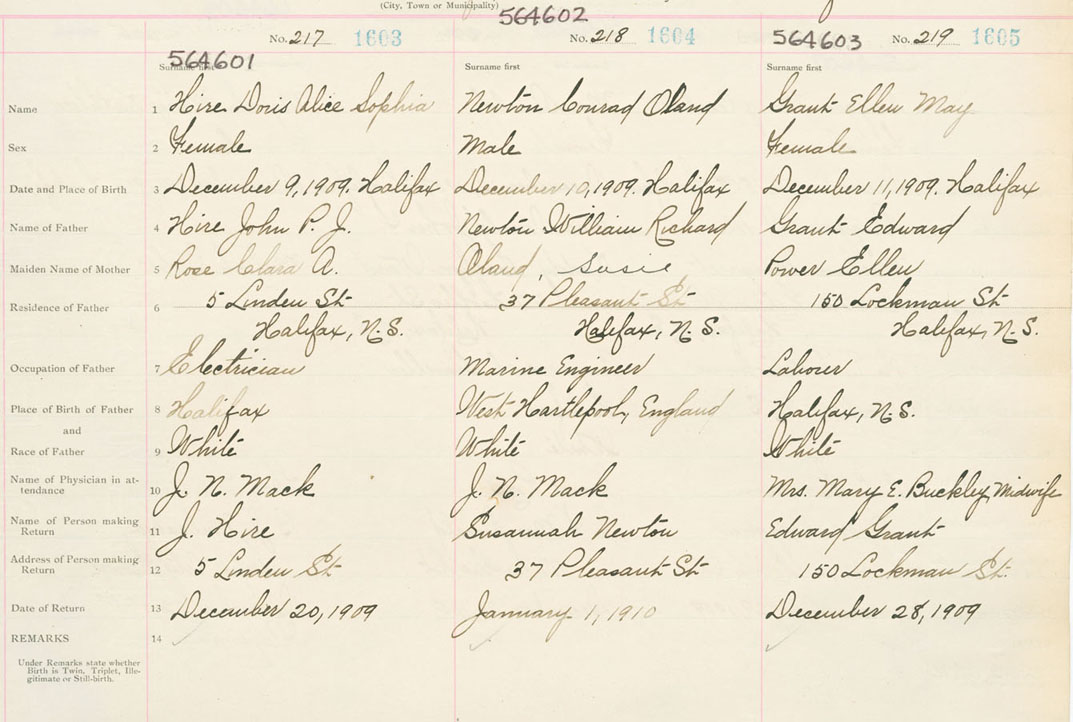 (City, Town or Municipality)
564602
No. 217 1603 No. 218 1604 564603 No. 219 1605
564601
Surname first Surname first Surname first
Name 1 Hire Doris Alice Sophia Newton Conrad Oland Grant Ellen May
Sex 2 Female Male Female
Date and Place of Birth 3 December 9, 1909. Halifax December 10, 1909. Halifax December 11, 1909. Halifax
Name of Father 4 Hire John P. J. Newton William Richard Grant Edward
Maiden Name of Mother 5 Rose Clara A. Oland, Susie Power Ellen
Residence of Father 6 5 Linden St 37 Pleasant St 150 Lockman St
Halifax, N.S. Halifax, N.S. Halifax, N.S.
Occupation of Father 7 Electrician Marine Engineer Labourer
Place of Birth of Father 8 Halifax West Hartlepool, England Halifax, N.S.
and
Race of Father 9 White White White
Name of Physician in at-
tendance 10 J. N. Mack J. N. Mack Mrs. Mary E. Buckley, Midwife
Name of Person making
Return 11 J. Hire Susannah Newton Edward Grant
Address of Person making
Return 12 5 Linden St 37 Pleasant St 150 Lockman St.
Date of Return 13 December 20, 1909 January 1, 1910 December 28, 1909
REMARKS 14
Under Remarks state whether
Birth is Twin, Triplet, Ille-
gitimate or Still-birth.